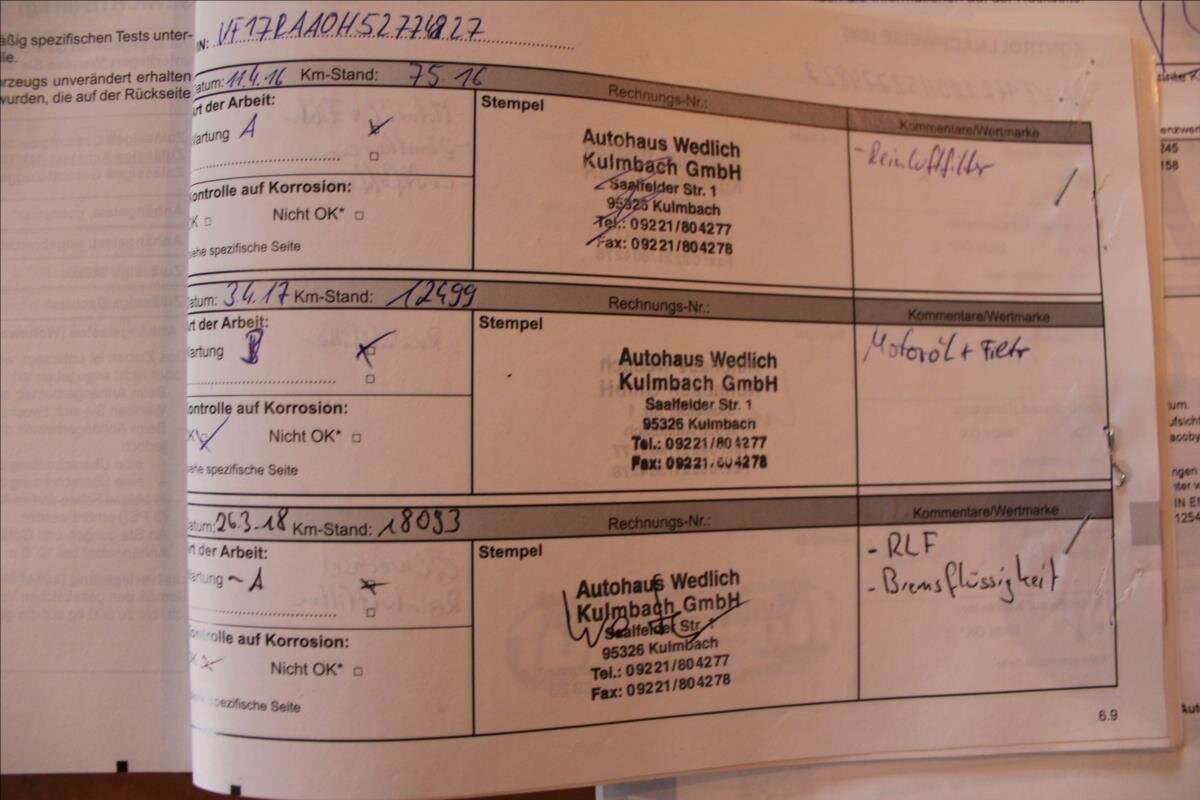 äßig spezifischen Tests unter-
ile.
rzeugs unverändert erhalten
wurden, die auf der Rückseite
IN: VF17RAA0H52774827
atum: 11.4.16 Km-Stand: 75 16 Rechnungs-Nr.: Kommentare/Wertmarke
rt der Arbeit:
artung A
Stempel
Autohaus Wedlich
Kulmbach GmbH
Saalfelder Str. 1
95326 Kulmbach
Tel.: 09221/804277
Fax: 09221/804278
- Reinluftfilter
ontrolle auf Korrosion:
K Nicht OK*
ehe spezifische Seite
atum: 3.4.17 Km-Stand: 12499 Rechnungs-Nr.: Kommentare/Wertmarke
rt der Arbeit:
artung B
Stempel
Autohaus Wedlich
Kulmbach GmbH
Saalfelder Str. 1
95326 Kulmbach
Tel.: 09221/804277
Fax: 09221/804278
Motoröl + Filtr
ontrolle auf Korrosion:
K Nicht OK*
ehe spezifische Seite
atum: 26.3.18 Km-Stand: 18093 Rechnungs-Nr.: Kommentare/Wertmarke
rt der Arbeit:
artung - A
Stempel
Autohaus Wedlich
Kulmbach GmbH
Saalfelder Str. 1
95326 Kulmbach
Tel.: 09221/804277
Fax: 09221/804278
- RLF
- Bremsflüssigkeit
ontrolle auf Korrosion:
K Nicht OK*
spezifische Seite
6.9